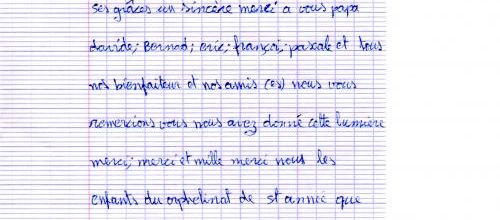 ses grâces un sincère merci a vous papa
davide; Bernad; eric; françoi; pascale et tous
nos bienfaiteur et nos amis (es) nous vous
remercions vous nous avez donné cette lumière
merci; merci et mille merci nous les
enfants du orphelinat de st année que